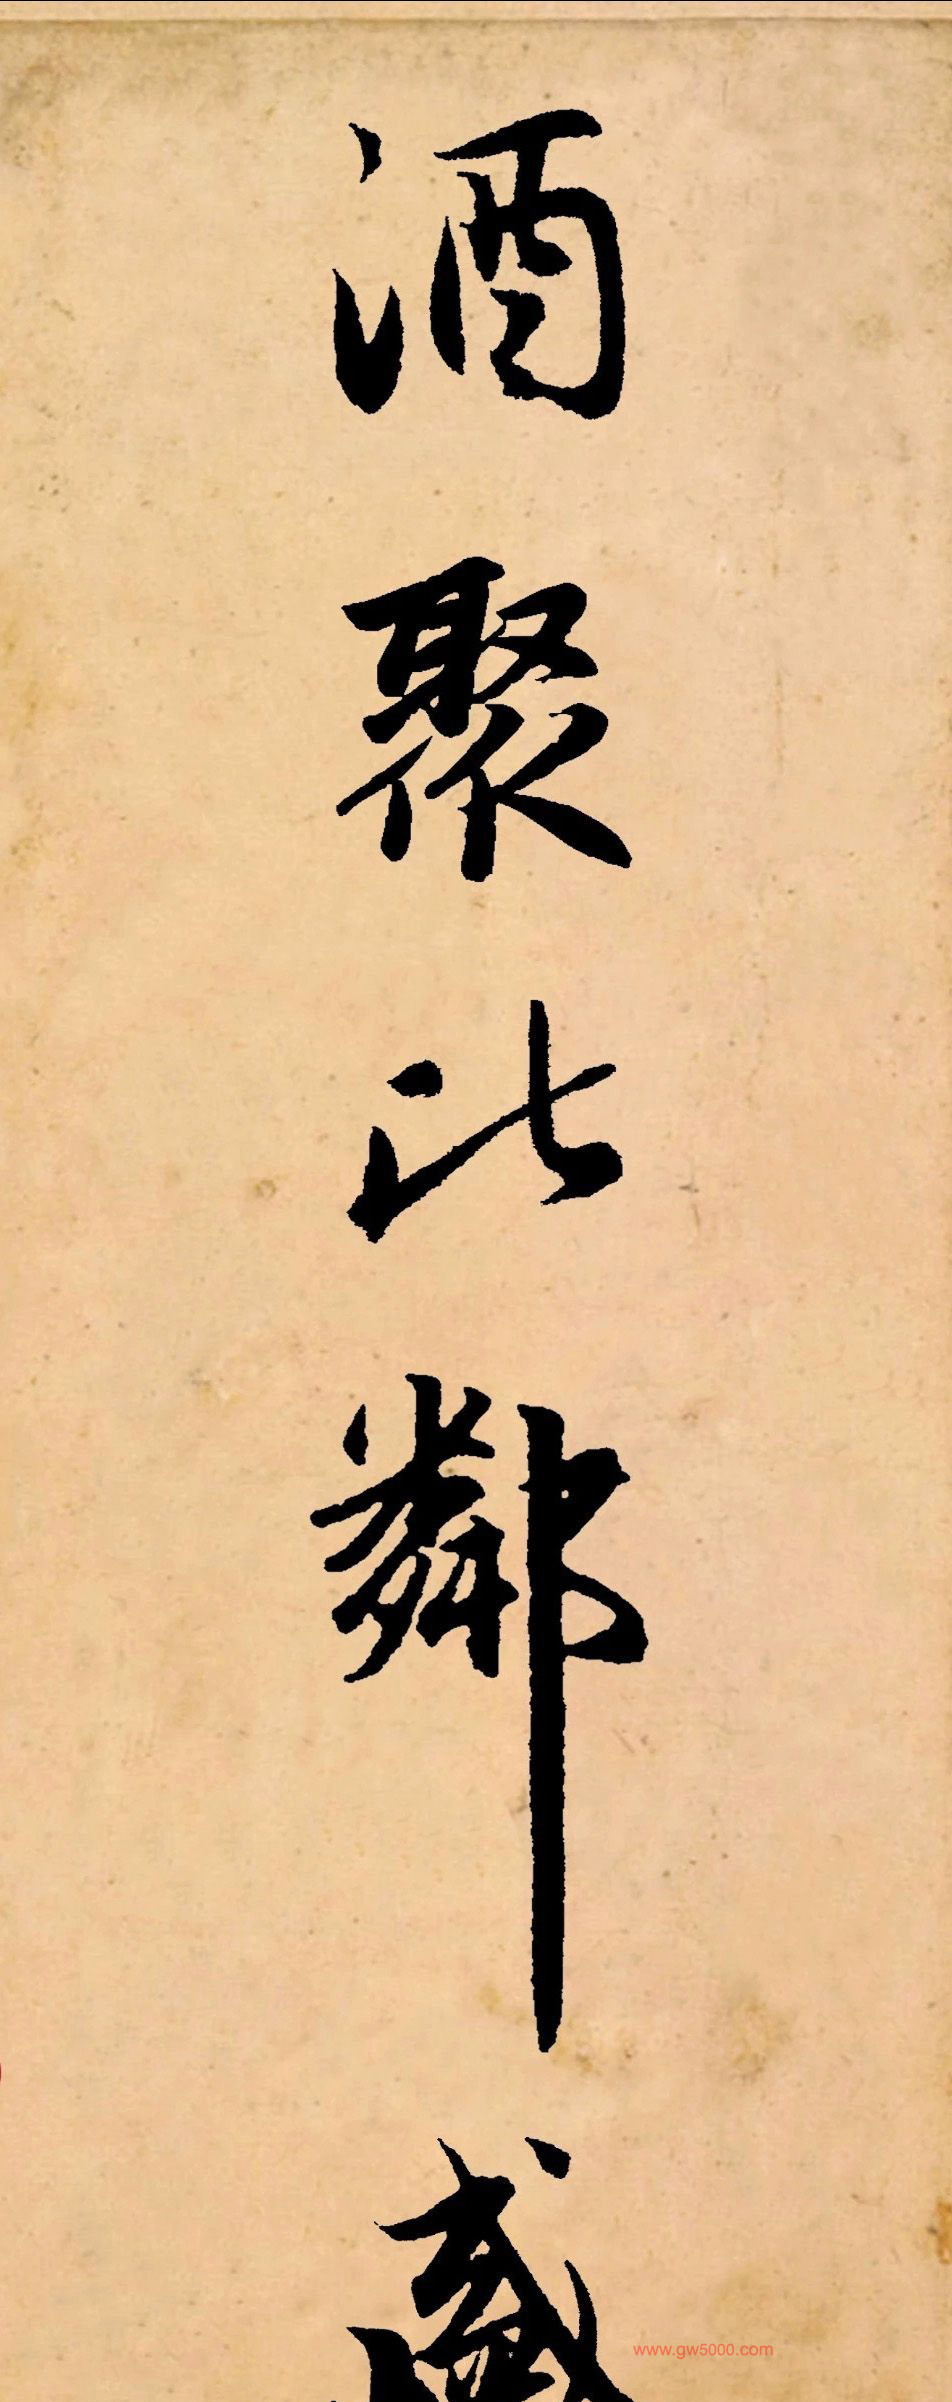 酒聚比鄰盛
www.gw5000.com